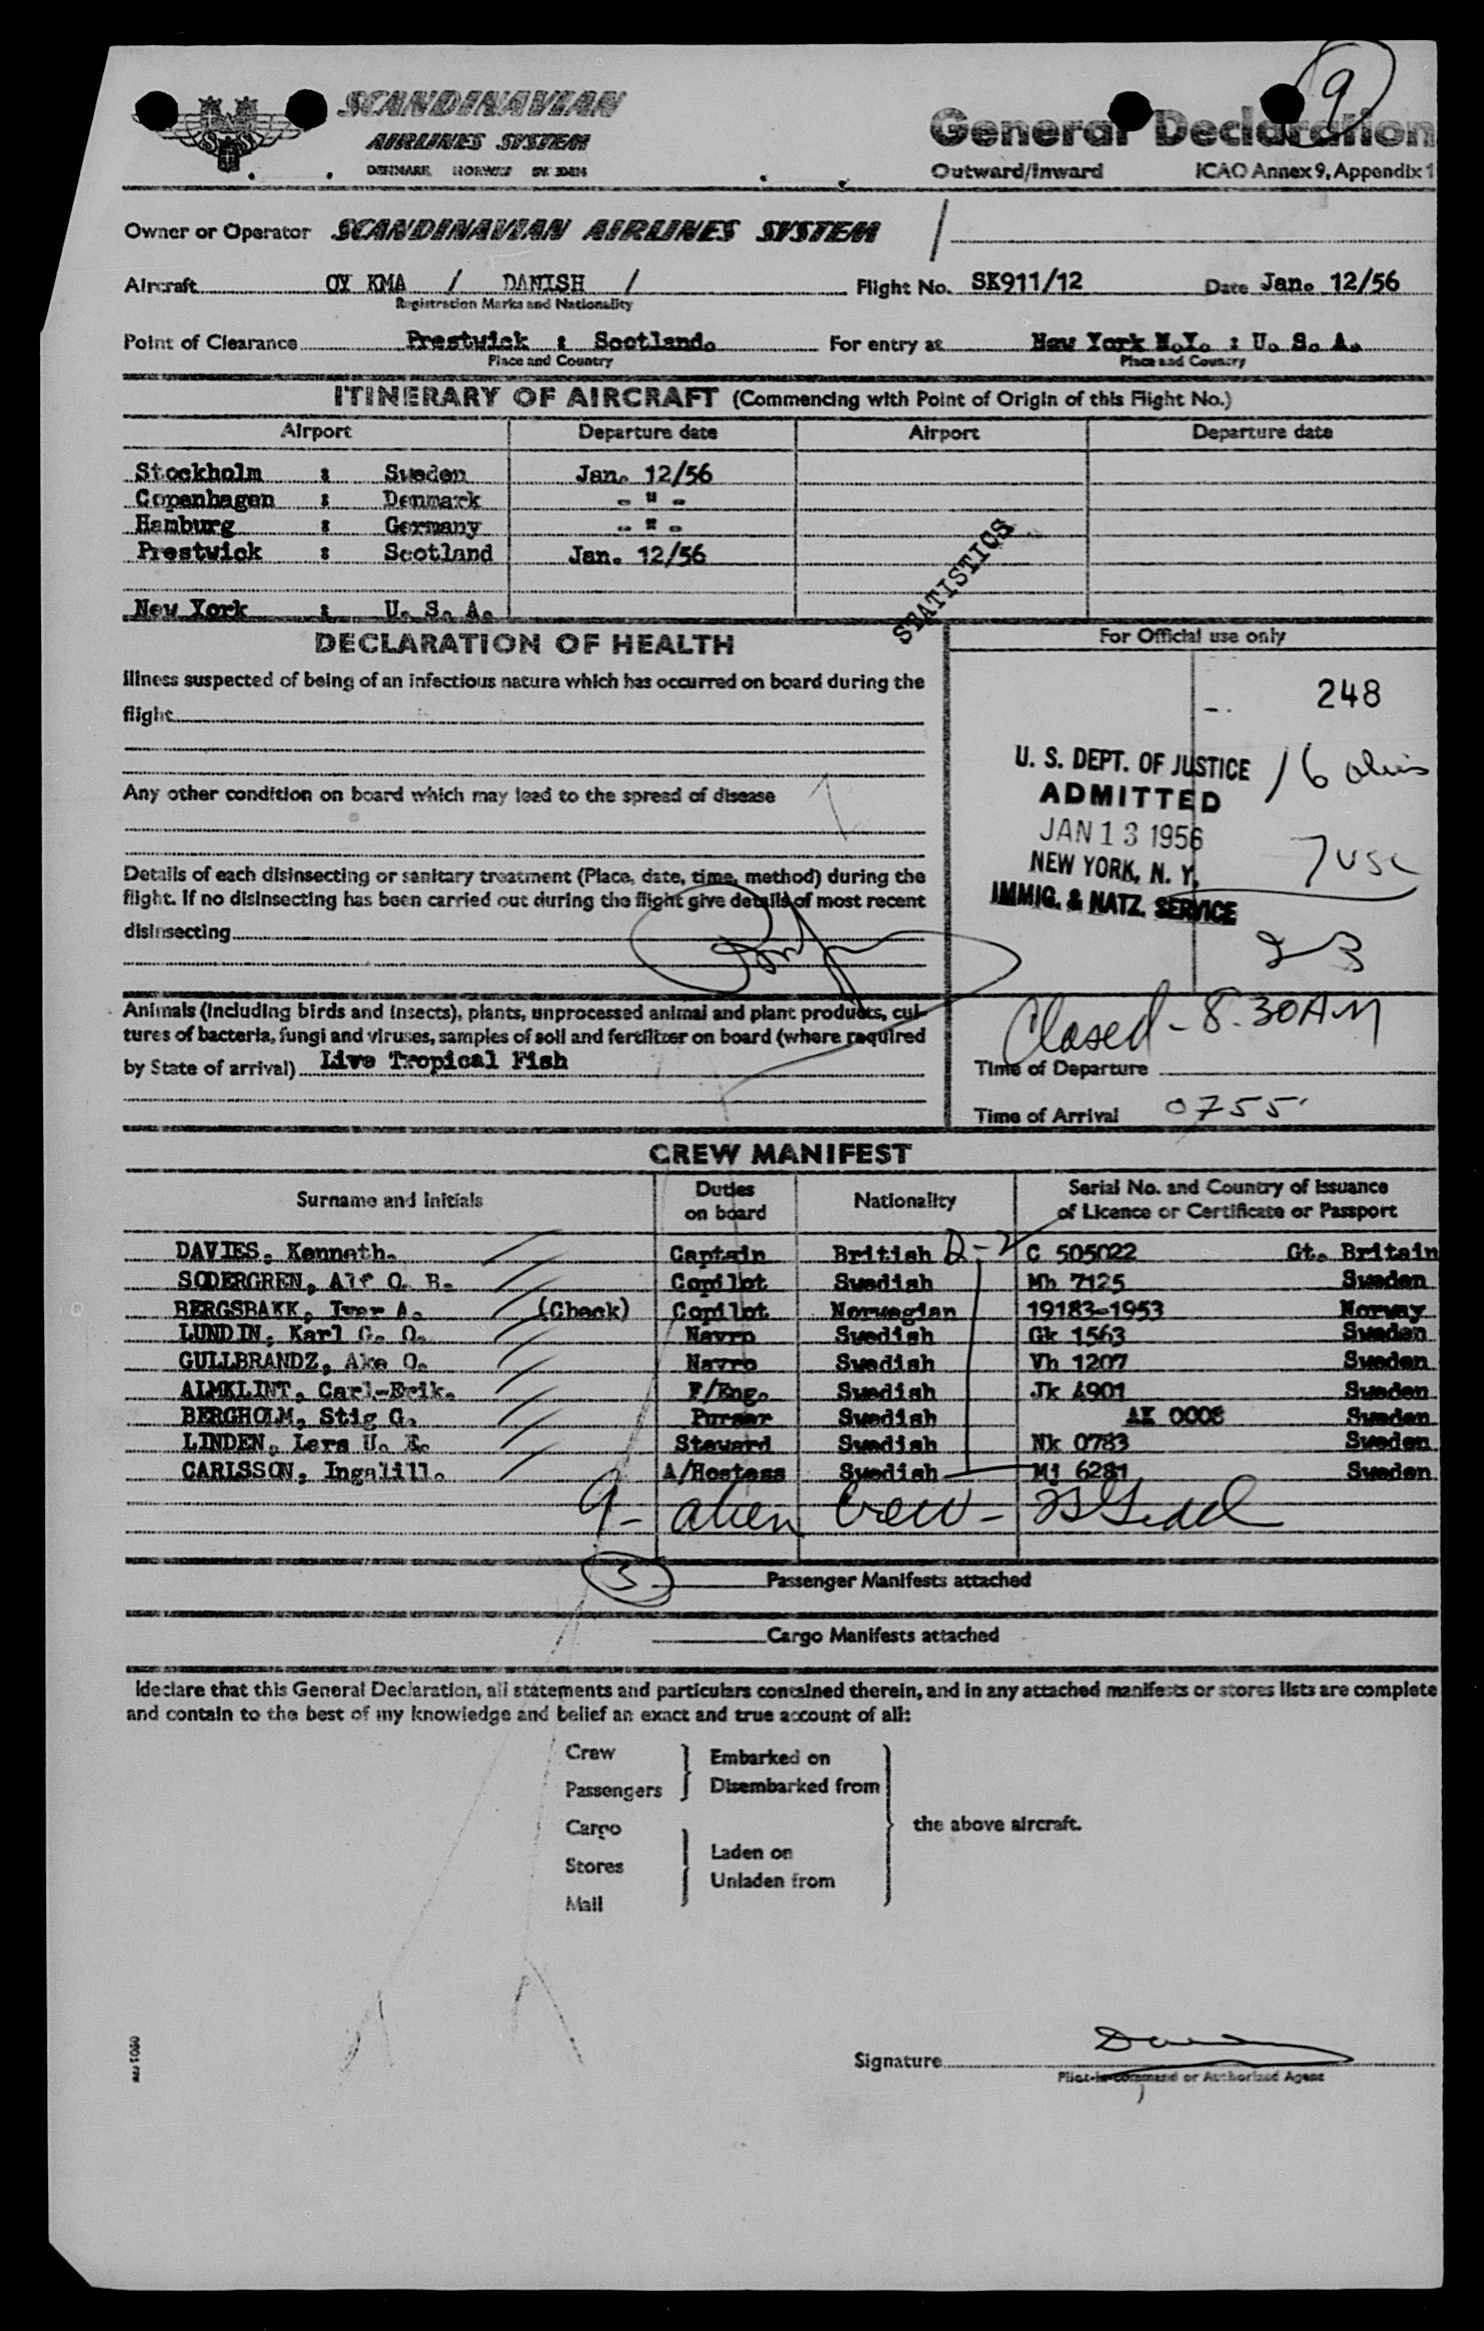 9
SCANDINAVIAN
AIRLINES SYSTEM
DENMARK NORWAY SWEDEN
General Declaration
Outward/Inward ICAO Annex 9, Appendix 1
Owner or Operator SCANDINAVIAN AIRLINES SYSTEM
Aircraft OY KMA / DANISH / Flight No. SK911/12 Date Jan. 12/56
Registration Marks and Nationality
Point of Clearance Prestwick : Scotland. For entry at New York N.Y. : U. S. A.
Place and Country Place and Country
ITINERARY OF AIRCRAFT (Commencing with Point of Origin of this Flight No.)
Airport Departure date Airport Departure date
Stockholm : Sweden Jan. 12/56
Copenhagen : Denmark - " -
Hamburg : Germany - " -
Prestwick : Scotland Jan. 12/56
New York : U. S. A.
STATISTICS
DECLARATION OF HEALTH
Illness suspected of being of an infectious nature which has occurred on board during the
flight
Any other condition on board which may lead to the spread of disease
Details of each disinsecting or sanitary treatment (Place, date, time, method) during the
flight. If no disinsecting has been carried out during the flight give details of most recent
disinsecting
Animals (including birds and insects), plants, unprocessed animal and plant products, cul-
tures of bacteria, fungi and viruses, samples of soil and fertilizer on board (where required
by State of arrival) Live Tropical Fish
For Official use only
248
U. S. DEPT. OF JUSTICE
ADMITTED
JAN 13 1956
NEW YORK, N. Y.
IMMIG. & NATZ. SERVICE
16
7 USC
23
Closed - 8.30AM
Time of Departure
Time of Arrival 0755
CREW MANIFEST
Surname and Initials Duties on board Nationality Serial No. and Country of Issuance of Licence or Certificate or Passport
DAVIES, Kenneth. Captain British D-2 C 505022 Gt. Britain
SODERGREN, Alf O. B. Copilot Swedish Mh 7125 Sweden
BERGSBAKK, Iver A. (Check) Copilot Norwegian 19183-1953 Norway
LUNDIN, Karl G. O. Navro Swedish Gk 1563 Sweden
GULLBRANDZ, Ake O. Navro Swedish Vh 1207 Sweden
ALMKLINT, Carl-Erik. F/Eng. Swedish Jk 4901 Sweden
BERGHOLM, Stig G. Purser Swedish AK 0008 Sweden
LINDEN, Lars U. E. Steward Swedish Nk 0783 Sweden
CARLSSON, Ingalill. A/Hostess Swedish Mj 6281 Sweden
9 - alien Crew -
3 Passenger Manifests attached
Cargo Manifests attached
I declare that this General Declaration, all statements and particulars contained therein, and in any attached manifests or stores lists are complete
and contain to the best of my knowledge and belief an exact and true account of all:
Crew
Passengers
Embarked on
Disembarked from
Cargo
Stores
Mail
Laden on
Unladen from
the above aircraft.
Signature
Pilot-in-command or Authorized Agent